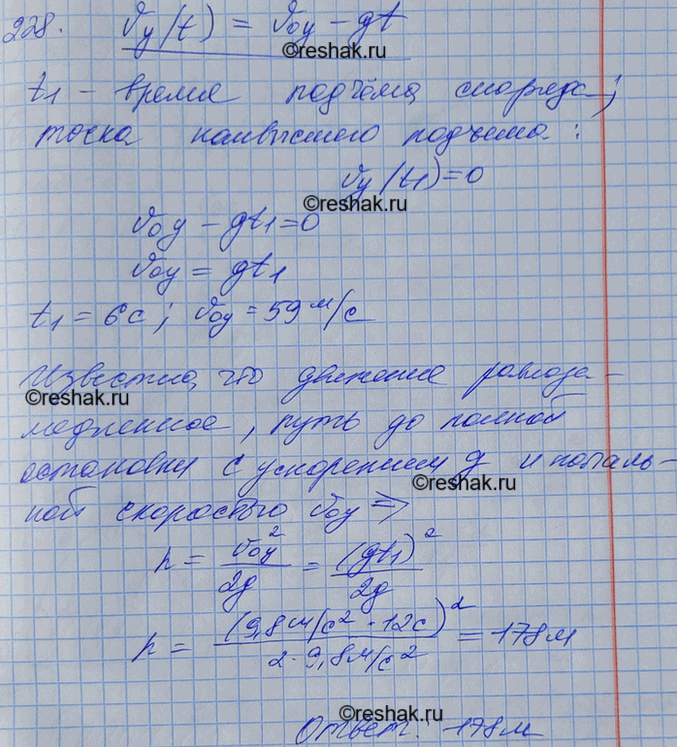 228. v_y(t) = v_0y - gt
©reshak.ru
t1 - время подъёма снаряда;
точка наивысшего подъема:
v_y(t1)=0
©reshak.ru
v_0y - gt1=0
v_0y = gt1
t1 = 6с; v_0y = 59 м/с
Известно, что движение равноза-
©reshak.ru
медленное, путь до полной
остановки с ускорением g и началь-
©reshak.ru
ной скоростью v_0y ⇒
h = v_0y²/2g = (gt1)²/2g
h = (9,8м/с² · 12с)²/2·9,8м/с² = 178м
©reshak.ru
Ответ: 178м